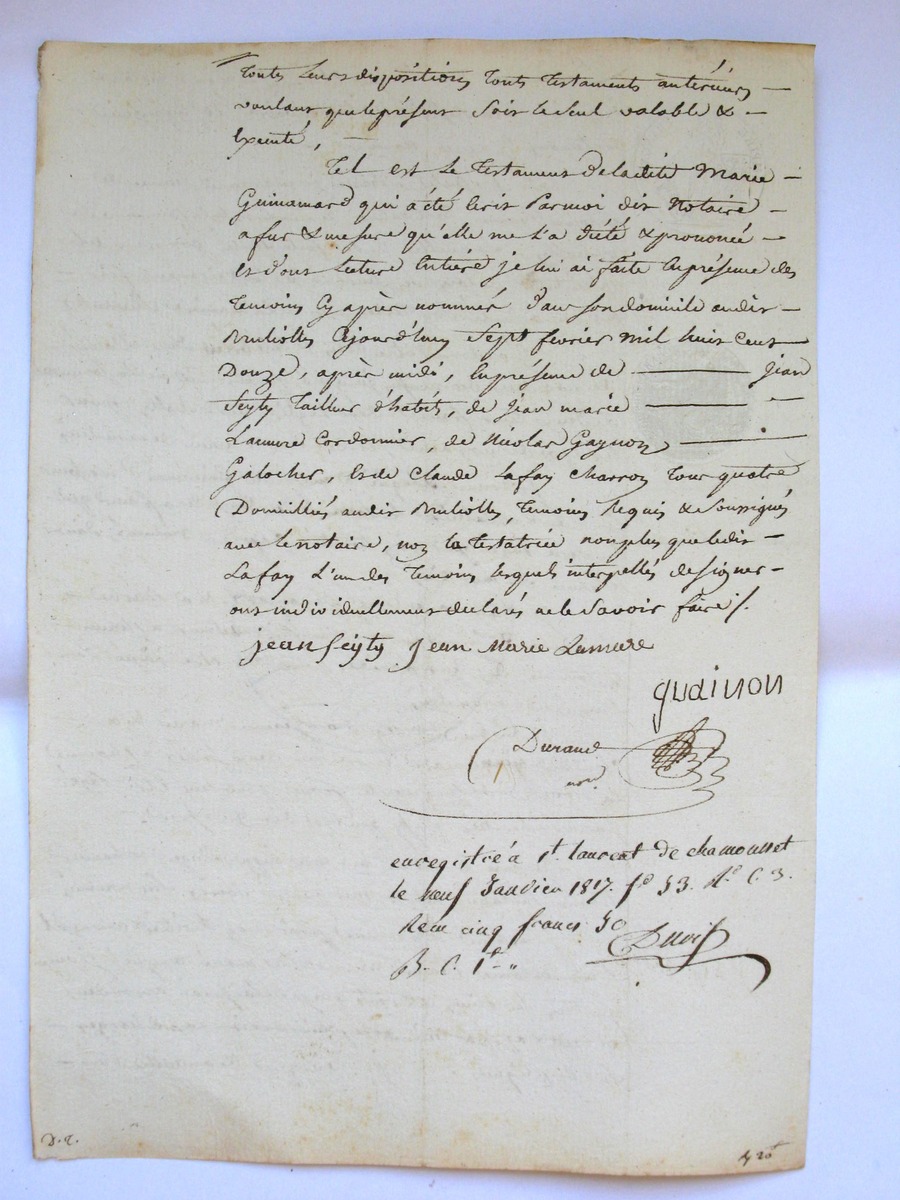 toutes leurs dispositions touts testaments antérieurs —
voulant que le présent soit le seul valable & —
executé, —
Tel est le testament de la dite Marie —
Guinamard qui a été écrit par moi dit Notaire —
a fur & mesure qu'elle me l'a dicté & prononcé —
et dont lecture entière je lui ai faite en présence des
temoins cy après nommés dans son domicile audit —
Brulliolles Cejourd'huy sept fevrier mil huit cent
Douze, après midi, en présence de — jean
Seyty tailleur d'habits, de jean marie —
Lamure Cordonnier, de Nicolas Gagnon —
Galocher, et de Claude Lafay Charron tous quatre
Domiciliés audit Brulliolles, temoins requis & soussignés
avec le notaire, non la testatrice non plus que ledit —
Lafay l'un des temoins lesquels interpellés de signer —
ont individuellement declarés ne le savoir faire ./.
jean Seyty Jean Marie Lamure
guainon
Durand
nore
enregistré à St. laurent de chamousset
le neuf Janvier 1817. fo 53. Ro C. 3.
Reçu cinq francs 50
D. C. 1f "